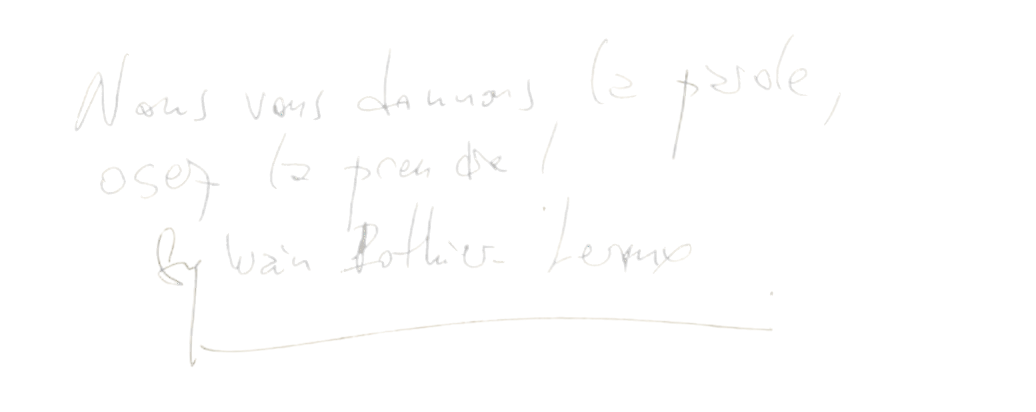 Nous vous donnons la parole,
osez la prendre !
Sylvain Rothier Leroux